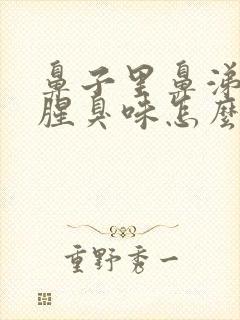 鼻子里鼻涕
腥臭味怎麼
重野秀一